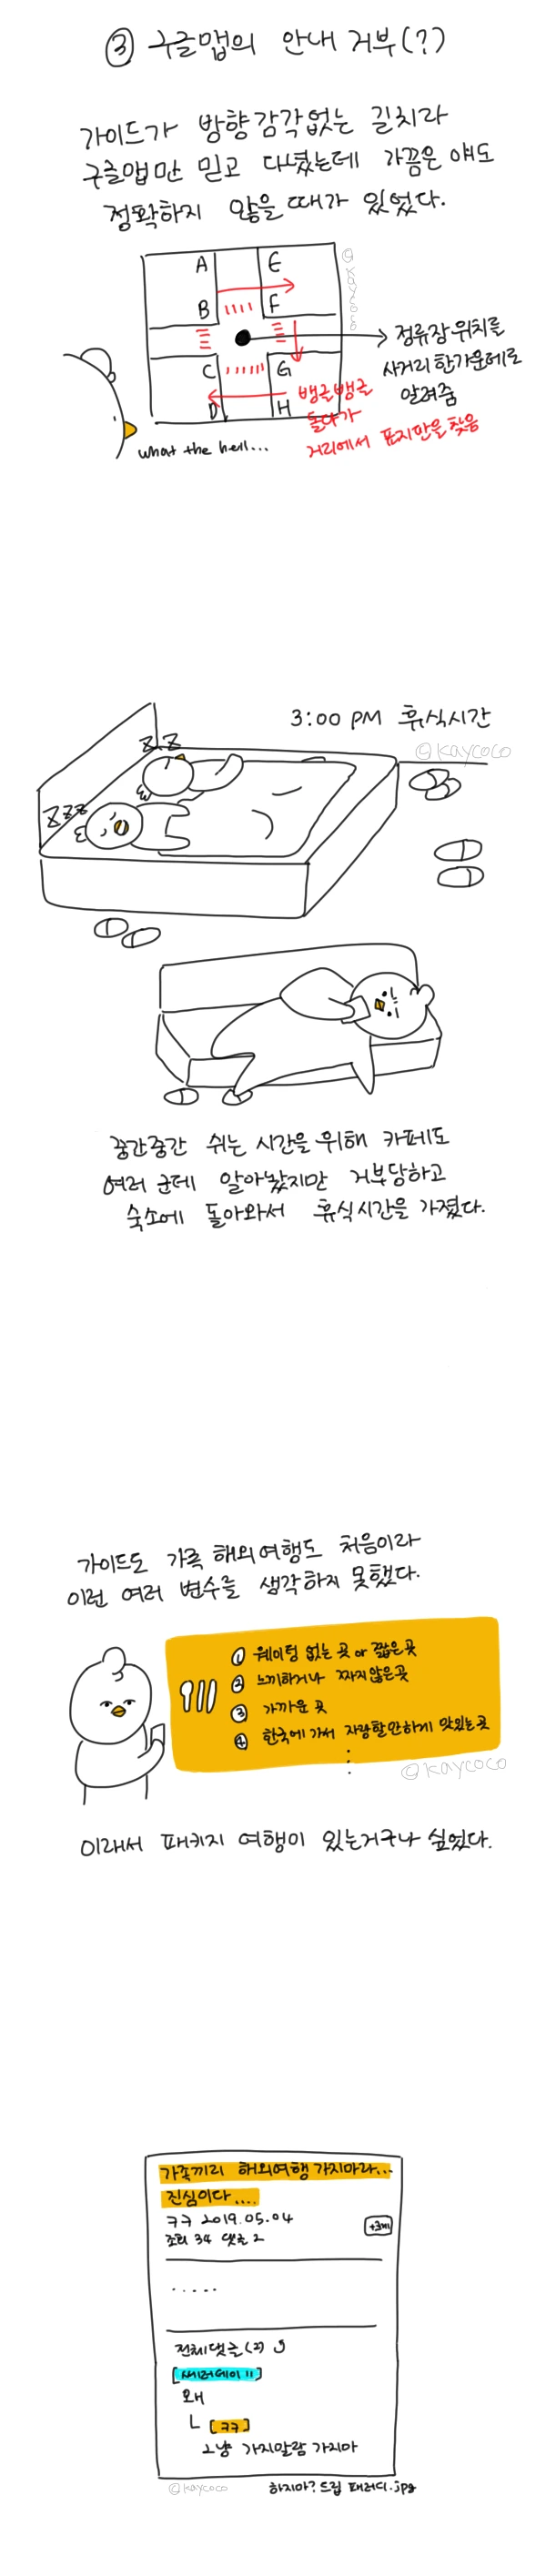 ③ 구글맵의 안내 거부(?)
가이드가 방향감각없는 길치라
구글맵만 믿고 다녔는데 가끔은 얘도
정확하지 않을때가 있었다.
A
E
B
F
C
G
D
H
©kaycoco
정류장 위치를
사거리 한가운데로
알려줌
뱅글뱅글
돌다가
거리에서 표지판을 찾음
what the hell...
3:00 PM 휴식시간
©kaycoco
z.z
zzz
중간중간 쉬는 시간을 위해 카페도
여러 군데 알아놨지만 거부당하고
숙소에 돌아와서 휴식시간을 가졌다.
가이드도 가족 해외여행도 처음이라
이런 여러 변수를 생각하지 못했다.
① 웨이팅 없는 곳 or 짧은곳
② 느끼하거나 짜지않은곳
③ 가까운 곳
④ 한국에 가서 자랑할만하게 맛있는곳
©kaycoco
이래서 패키지 여행이 있는거구나 싶었다.
가족끼리 해외여행 가지마라...
진심이다....
쿠쿠 2019.05.04
조회 34 댓글 2
.....
전체댓글(2)
[써러데이11]
왜
ㄴ [쿠쿠]
그냥 가지말람 가지마
©kaycoco
하지마? 드립 패러디.jpg